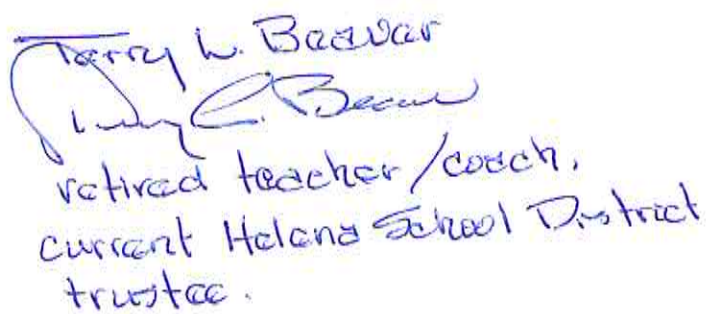 Terry L. Beaver
Terry L. Beaver
retired teacher/coach,
current Helena School District
trustee.